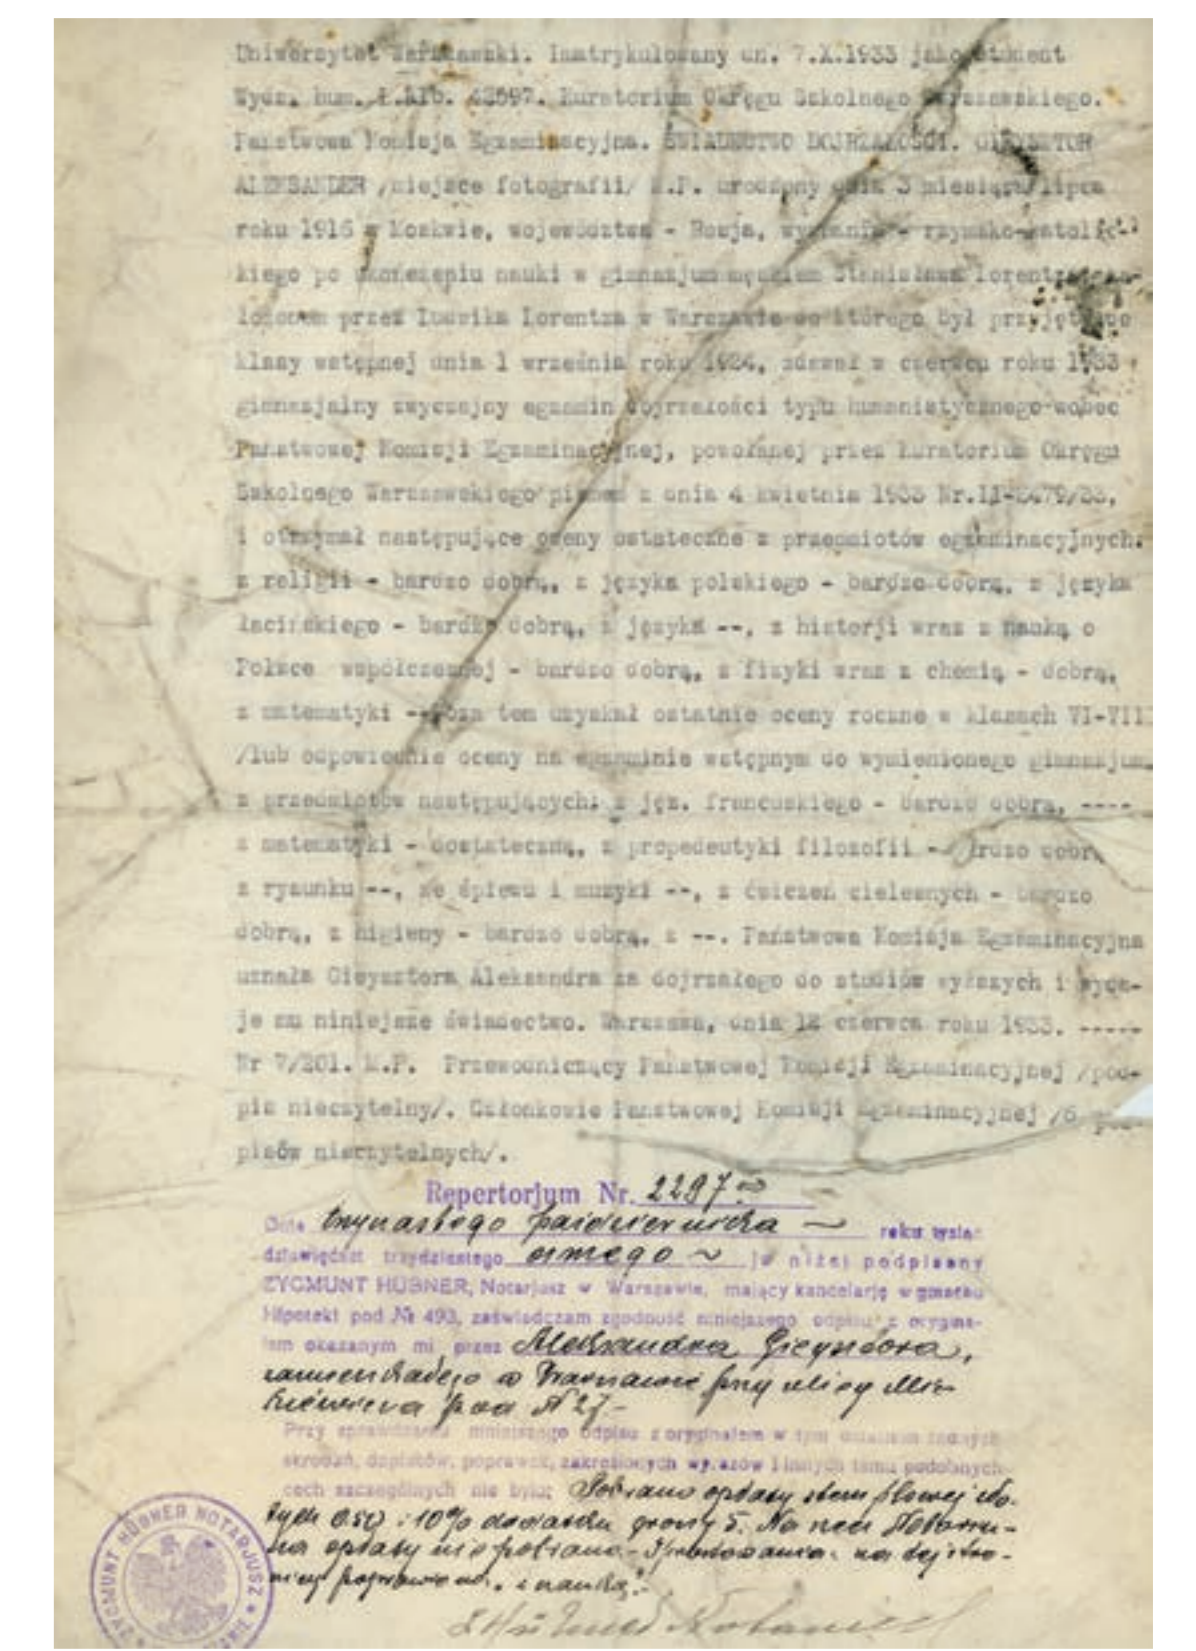 Uniwersytet Warszawski. Imatrykulowany dn. 7.X.1933 jako student
Wydz. hum. L.alb. 42597. Kuratorium Okręgu Szkolnego Warszawskiego.
Państwowa Komisja Egzaminacyjna. ŚWIADECTWO DOJRZAŁOŚCI. GIEYSZTOR
ALEKSANDER /miejsce fotografii/ M.P. urodzony dnia 3 miesiąca lipca
roku 1916 w Moskwie, województwa - Rosja, wyznania - rzymsko-katolic-
kiego po ukończeniu nauki w gimnazjum męskiem Stanisława Lorentza
łożonem przez Ludwika Lorentza w Warszawie do którego był przyjęty do
klasy wstępnej dnia 1 września roku 1924, zdawał w czerwcu roku 1933
gimnazjalny zwyczajny egzamin dojrzałości typu humanistycznego wobec
Państwowej Komisji Egzaminacyjnej, powołanej przez Kuratorium Okręgu
Szkolnego Warszawskiego pismem z dnia 4 kwietnia 1933 Nr.II-2479/33,
i otrzymał następujące oceny ostateczne z przedmiotów egzaminacyjnych:
z religii - bardzo dobrą, z języka polskiego - bardzo dobrą, z języka
łacińskiego - bardzo dobrą, z języka --, z historji wraz z nauką o
Polsce współczesnej - bardzo dobrą, z fizyki wraz z chemią - dobrą,
z matematyki -- Poza tem uzyskał ostatnie oceny roczne w klasach VI-VIII
/lub odpowiednie oceny na egzaminie wstępnym do wymienionego gimnazjum
z przedmiotów następujących: z jęz. francuskiego - bardzo dobrą, ----
z matematyki - dostateczną, z propedeutyki filozofii - bardzo dobrą
z rysunku --, ze śpiewu i muzyki --, z ćwiczeń cielesnych - bardzo
dobrą, z higieny - bardzo dobrą, z --. Państwowa Komisja Egzaminacyjna
uznała Gieysztora Aleksandra za dojrzałego do studiów wyższych i wyda-
je mu niniejsze świadectwo. Warszawa, dnia 12 czerwca roku 1933. -----
Nr 7/201. M.P. Przewodniczący Państwowej Komisji Egzaminacyjnej /pod-
pis nieczytelny/. Członkowie Państwowej Komisji Egzaminacyjnej /6 pod-
pisów nieczytelnych/.
Repertorjum Nr. 2297
Dnia trzynastego października roku tysiąc
dziewięćset trzydziestego ósmego ja niżej podpisany
ZYGMUNT HÜBNER, Notarjusz w Warszawie, mający kancelarję w gmachu
Hipoteki pod № 493, zaświadczam zgodność niniejszego odpisu z orygina-
łem okazanym mi przez Aleksandra Gieysztora,
zamieszkałego w Warszawie przy ulicy Mic-
kiewicza pod N 27.-
Przy sprawdzaniu niniejszego odpisu z oryginałem w tym ostatnim żadnych
skrobań, dopisków, poprawek, zakreślonych wyrazów i innych temu podobnych
cech szczególnych nie było; Pobrano opłaty stemplowej zło-
tych 0.50 i 10% dodatku groszy 5. Na rzecz Notarju-
sza opłaty nie pobrano.- na tej stro-
nicy poprawiono: „z nauką".
ZYGMUNT HÜBNER NOTARJUSZ
Z Hübner Notariusz